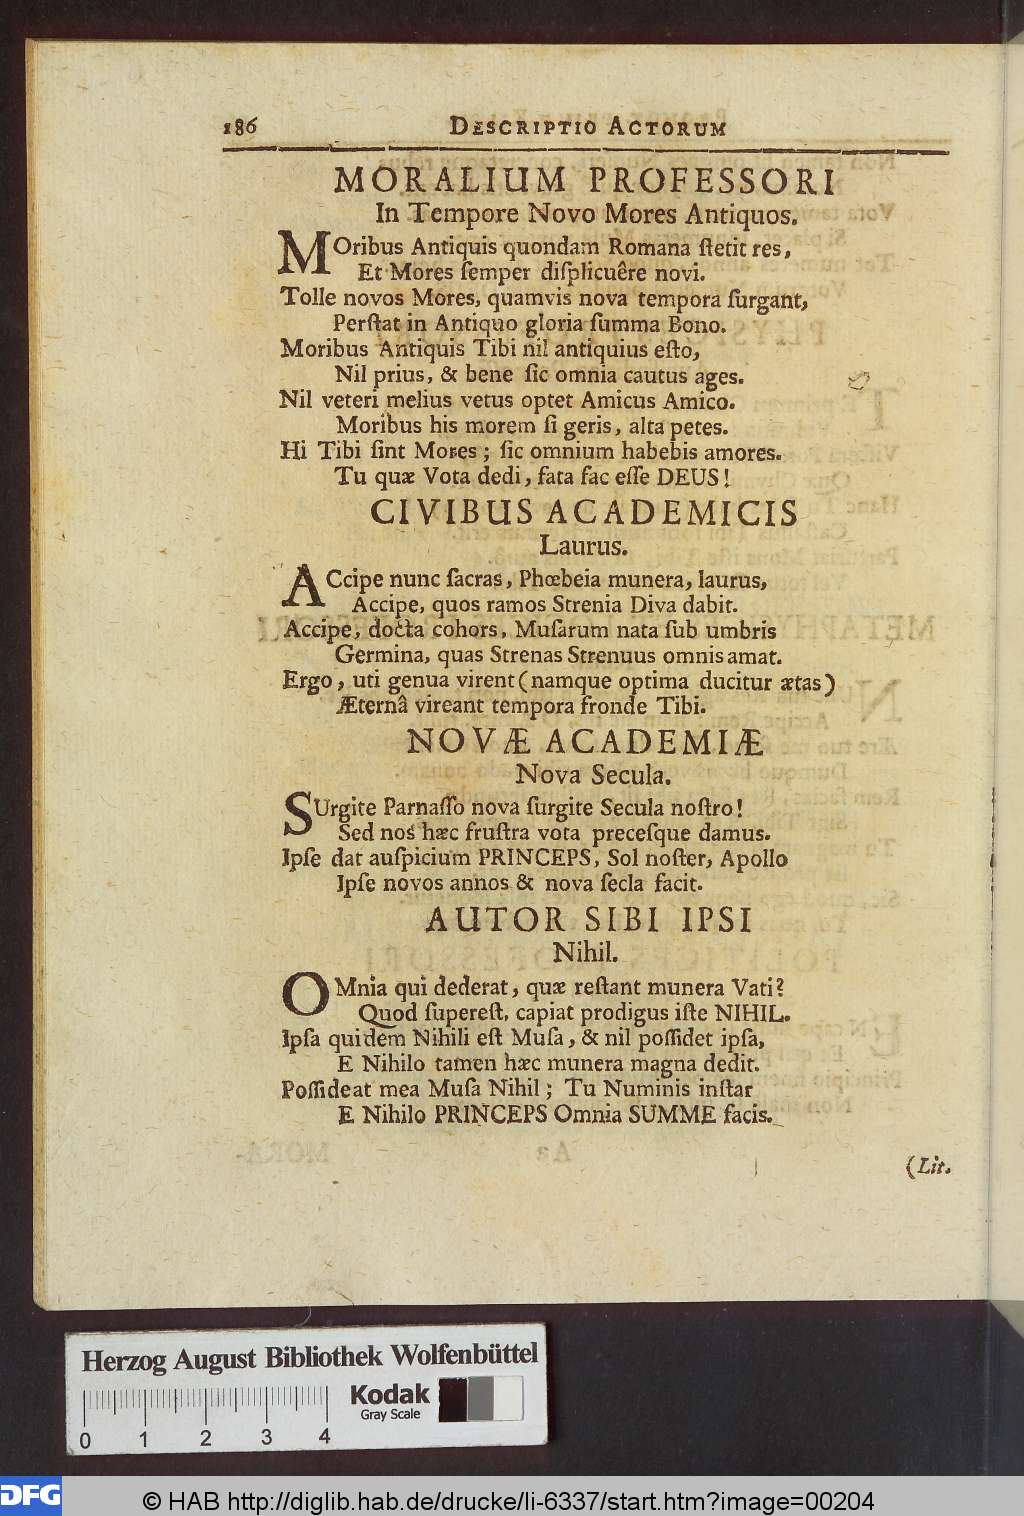 186 DESCRIPTIO ACTORUM
MORALIUM PROFESSORI
In Tempore Novo Mores Antiquos.
MOribus Antiquis quondam Romana ſtetit res,
Et Mores ſemper diſplicuêre novi.
Tolle novos Mores, quamvis nova tempora ſurgant,
Perſtat in Antiquo gloria ſumma Bono.
Moribus Antiquis Tibi nil antiquius eſto,
Nil prius, & bene ſic omnia cautus ages.
Nil veteri melius vetus optet Amicus Amico.
Moribus his morem ſi geris, alta petes.
Hi Tibi ſint Mores; ſic omnium habebis amores.
Tu quæ Vota dedi, fata fac eſſe DEUS!
CIVIBUS ACADEMICIS
Laurus.
ACcipe nunc ſacras, Phœbeia munera, laurus,
Accipe, quos ramos Strenia Diva dabit.
Accipe, docta cohors, Muſarum nata ſub umbris
Germina, quas Strenas Strenuus omnis amat.
Ergo, uti genua virent (namque optima ducitur ætas)
Æternâ vireant tempora fronde Tibi.
NOVÆ ACADEMIÆ
Nova Secula.
SUrgite Parnaſſo nova ſurgite Secula noſtro!
Sed nos hæc fruſtra vota preceſque damus.
Ipſe dat auſpicium PRINCEPS, Sol noſter, Apollo
Ipſe novos annos & nova ſecla facit.
AUTOR SIBI IPSI
Nihil.
OMnia qui dederat, quæ reſtant munera Vati?
Quod ſupereſt, capiat prodigus iſte NIHIL.
Ipſa quidem Nihili eſt Muſa, & nil poſſidet ipſa,
E Nihilo tamen hæc munera magna dedit.
Poſſideat mea Muſa Nihil; Tu Numinis inſtar
E Nihilo PRINCEPS Omnia SUMME facis.
(Lit.
Herzog August Bibliothek Wolfenbüttel
Kodak
Gray Scale
0 1 2 3 4
DFG
© HAB http://diglib.hab.de/drucke/li-6337/start.htm?image=00204